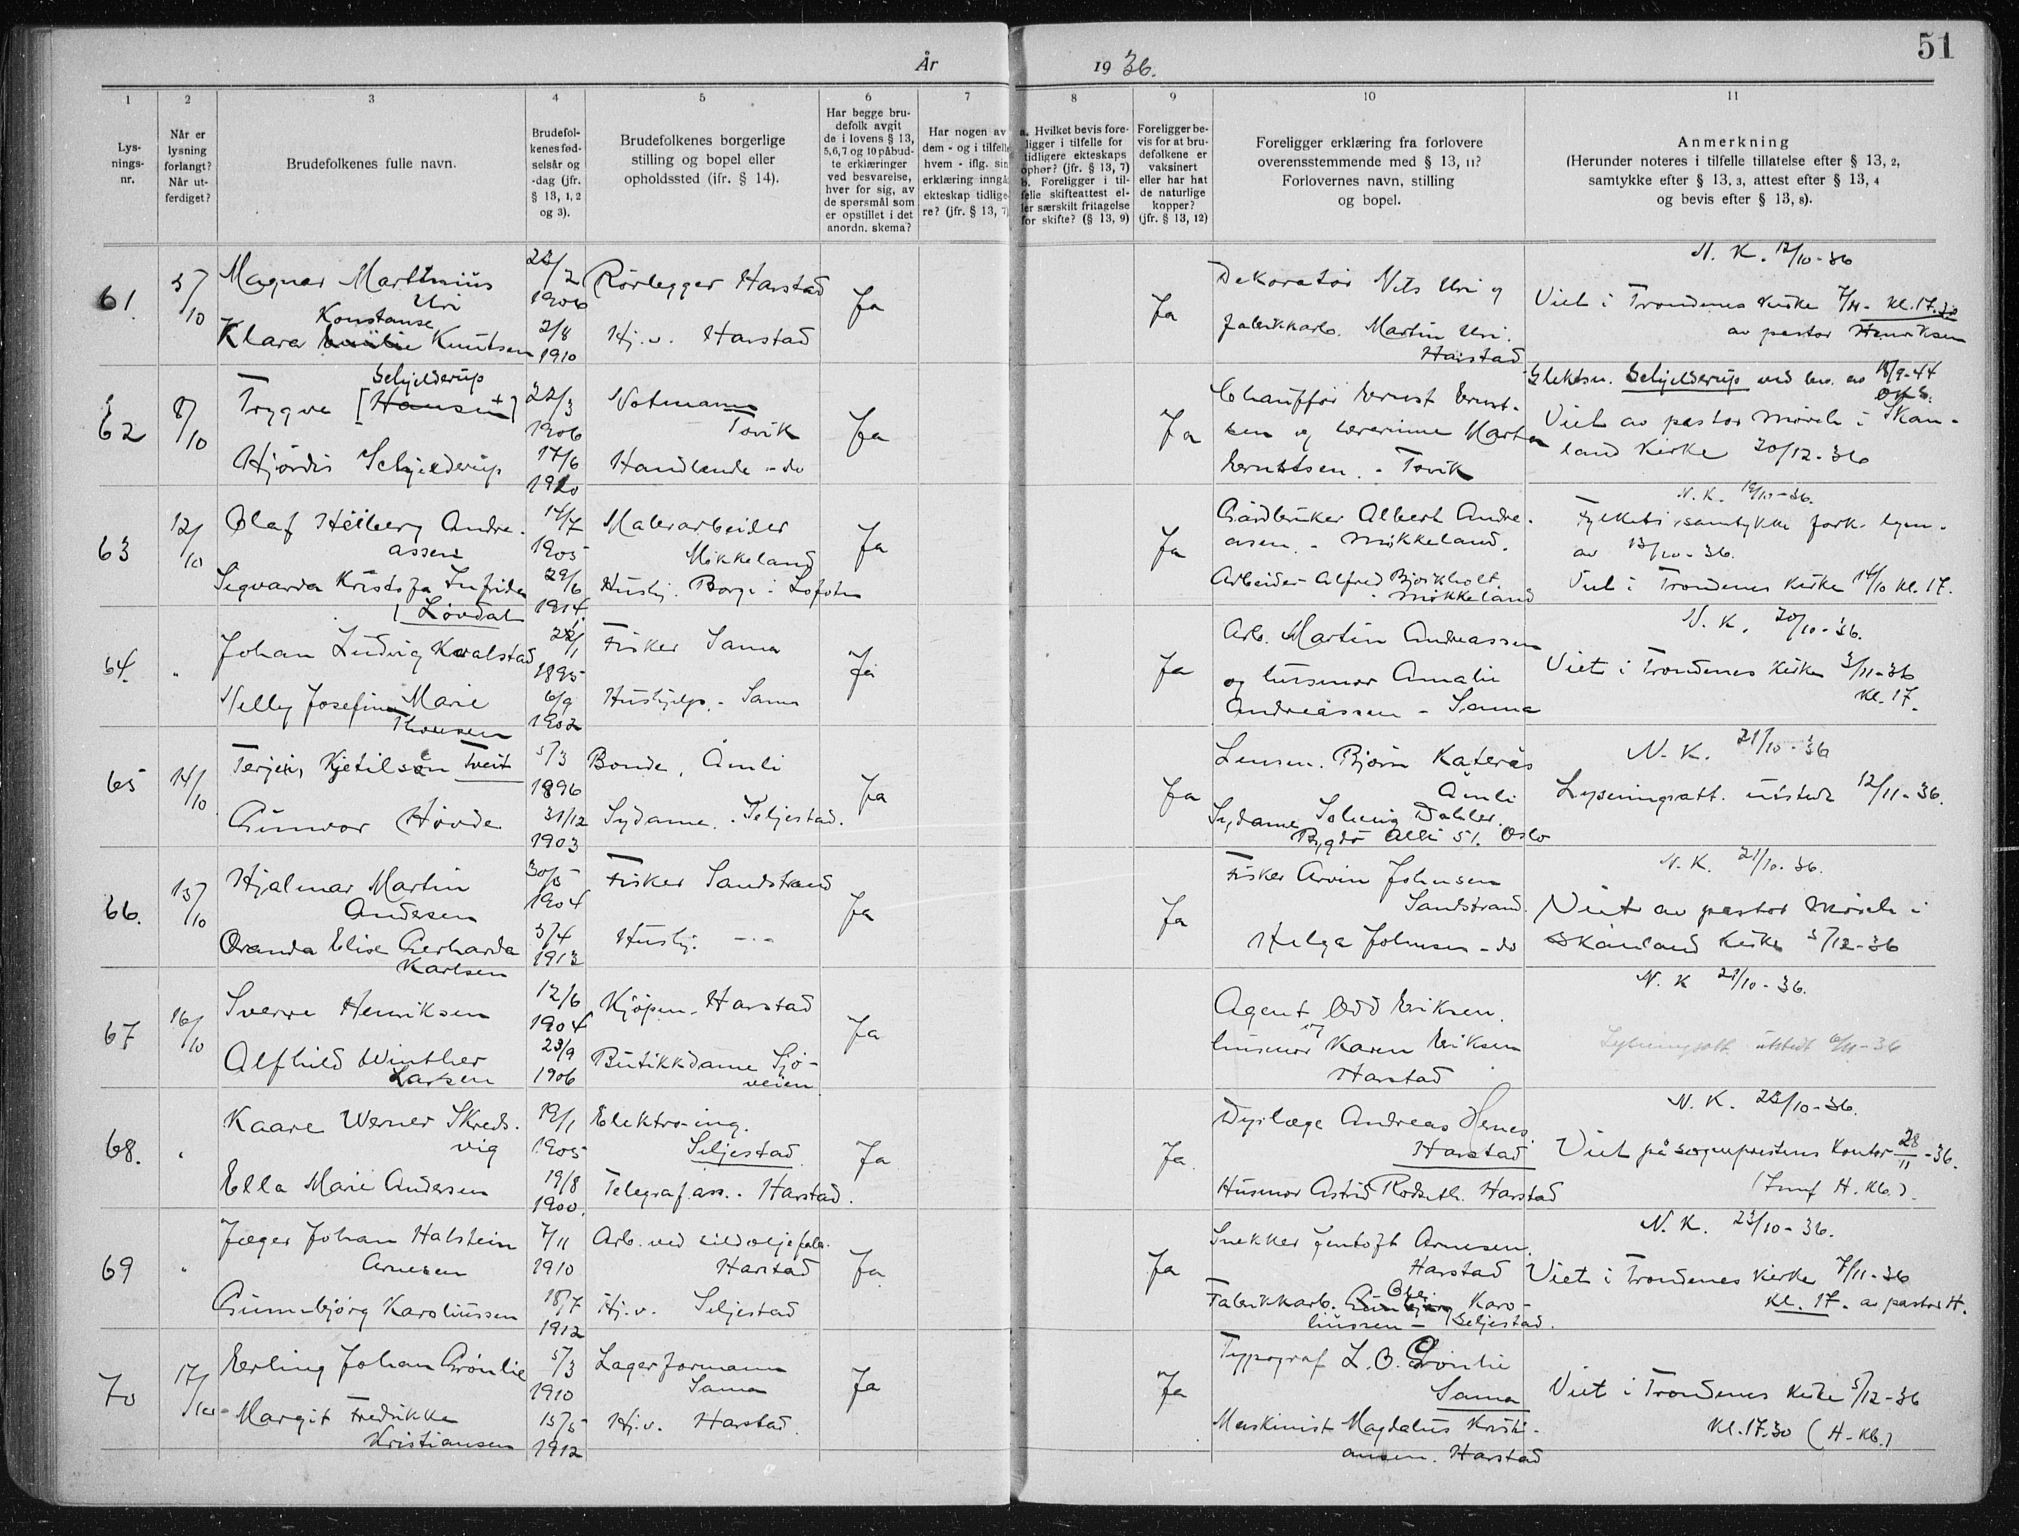 51
År 1936.
1 2 3 4 5 6 7 8 9 10 11
Lysningsnr.
Når er lysning forlangt? Når utferdiget?
Brudefolkenes fulle navn.
Brudefolkenes fødselsår og -dag (jfr. § 13, 1, 2 og 3).
Brudefolkenes borgerlige stilling og bopel eller opholdssted (jfr. § 14).
Har begge brudefolk avgit de i lovens § 13, 5,6,7 og 10 påbudte erklæringer ved besvarelse, hver for sig, av de spørsmål som er opstillet i det anordn. skema?
Har nogen av dem - og i tilfelle hvem - iflg. sin erklæring inngå ekteskap tidligere? (jfr. § 13, 7)
a. Hvilket bevis foreligger i tilfelle for tidligere ekteskaps ophør? (jfr. § 13, 7) b. Foreligger i tilfelle skifteattest eller særskilt fritagelse for skifte? (§ 13, 9)
Foreligger bevis for at brudefolkene er vaksinert eller har hat de naturlige kopper? (jfr. § 13, 12)
Foreligger erklæring fra forlovere overensstemmende med § 13, 11? Forlovernes navn, stilling og bopel.
Anmerkning (Herunder noteres i tilfelle tillatelse efter § 13, 2, samtykke efter § 13, 3, attest efter § 13, 4 og bevis efter § 13, 8).
61. 5/10 Magnar Marthinius Uri
1906 Rørlegger Harstad Ja
Klara Konstanse Knutsen 2/8 1910 Hj.v. Harstad
Ja Dekoratør Nils Uri og
fabrikkarb. Martin Uri.
Harstad
N. K. 12/10-36
Viet i Trondenes Kirke 7/11- Kl. 17.30
av pastor Henriksen
62 8/10 Trygve [Hansen] Schjelderup 22/3 1906 Notmann
Tovik Ja
Hjørdis Schjelderup 17/6 1920 Handlende - do
Ja Chauffør Ernst Ernst-
sen og lærerinne
Tovik
Schjelderup ved bev. av 18/9-44
Viet av pastor Mørch i Skån-
land Kirke 20/12-36
63 12/10 Olaf Heiberg Andre-
assen 14/7 1905 Malerarbeider
Mikkeland Ja
Sigvarda Kristofa Infrida
Løvdal 29/6 1914 Hushj. Borge i Lofoten
Ja Gårdbruker Albert Andre-
asen. - Møkkeland.
Arbeider Alfred Bjørkholt.
- Møkkeland
N. K. 19/10-36.
Fylkets samtykke fork. lysn.
av 13/10-36.
Viet i Trondenes Kirke 14/10 Kl. 17.
64. " Johan Ludvig Kvalstad 1895 Fisker Sama Ja
Nelly Josefine Marie
6/9 1902 Hushjelp. - Sama
Ja Arb. Martin Andreassen
og husmor Amalie
Andreassen - Sama
N. K. 20/10-36.
Viet i Trondenes Kirke 3/11-36
Kl. 17.
65 14/10 Terjei, Kjetilson Tveit 5/3 1896 Bonde, Åmli Ja
Gunvor Hovde 31/12 1903 Sydame. Seljestad.
Ja Lensm. Bjørn Kateràs
Åmli
Sydame Solveig Dahler.
Bygdø Allé 51. Oslo
N. K. 21/10-36
Lysningsatt. utstedt 12/11-36.
66. 15/10 Hjalmar Martin
Andersen 30/5 1904 Fisker Sandstrand Ja
Elise Gerharda
Karlsen 5/4 1913 Hushj. -"-
Ja Fisker Arvin Johnsen
Sandstrand.
Helga Johnsen - do
N. K. 21/10-36.
Viet av pastor Mørch i
Skånland Kirke 5/12-36
67 16/10 Sverre Henriksen 12/6 1904 Kjøpm. Harstad Ja
Alfhild Winther
Larsen 23/9 1906 Butikkdame Sjø-
veien
Agent Odd Eriksen.
husmor Karen Eriksen
Harstad
N. K 21/10-36.
Lysningsatt. utstedt 6/11-36
68. " Kaare Werner Skreds-
vig 19/1 1905 Elektro-ing.
Seljestad Ja
Ella Marie Andersen 19/8 1900 Telegraf.ass. Harstad.
Ja. Dyrlæge Andreas Henes.
Harstad
Husmor Astrid Harstad
N. K. 23/10-36.
Viet på sogneprestens Kontor 28/11-36.
H. Kb.).
69 " Jæger Johan Halstein
Arnesen 7/11 1910 Arb. ved sildoljefabr.
Harstad Ja
Gunnbjørg Karoliussen 18/7 1912 Hj.v. Seljestad
Ja Snekker Jentoft Arnesen.
Harstad
Fabrikkarb. Karo-
liussen - Seljestad.
N. K. 23/10-36.
Viet i Trondenes Kirke 7/11-36
Kl. 17. av pastor H.
70 17/10 Erling Johan Grønlie 5/3 1910 Lagerformann
Sama Ja
Margit Fredrikke
Kristiansen 15/5 1912 Hj.v. Harstad.
Ja Typograf L. O. Grønlie
Sama
Maskinist Magdalus Kristi-
ansen. Harstad
Viet i Trondenes Kirke 5/12-36
Kl. 17.30 (H-Kb.)